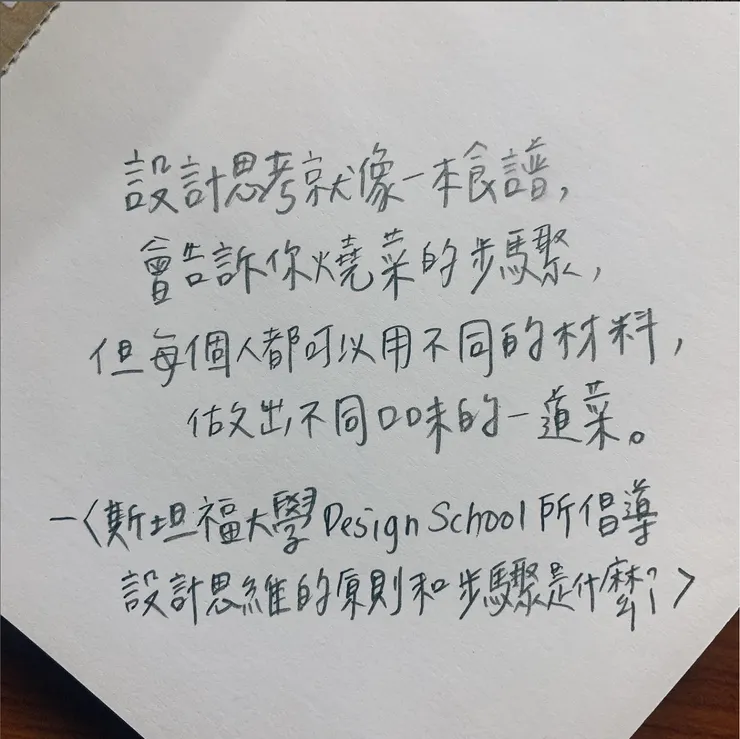 設計思考就像一本食譜，
會告訴你燒菜的步驟，
但每個人都可以用不同的材料，
做出不同口味的一道菜。
—〈斯坦福大學 Design School 所倡導
設計思維的原則和步驟是什麼？〉